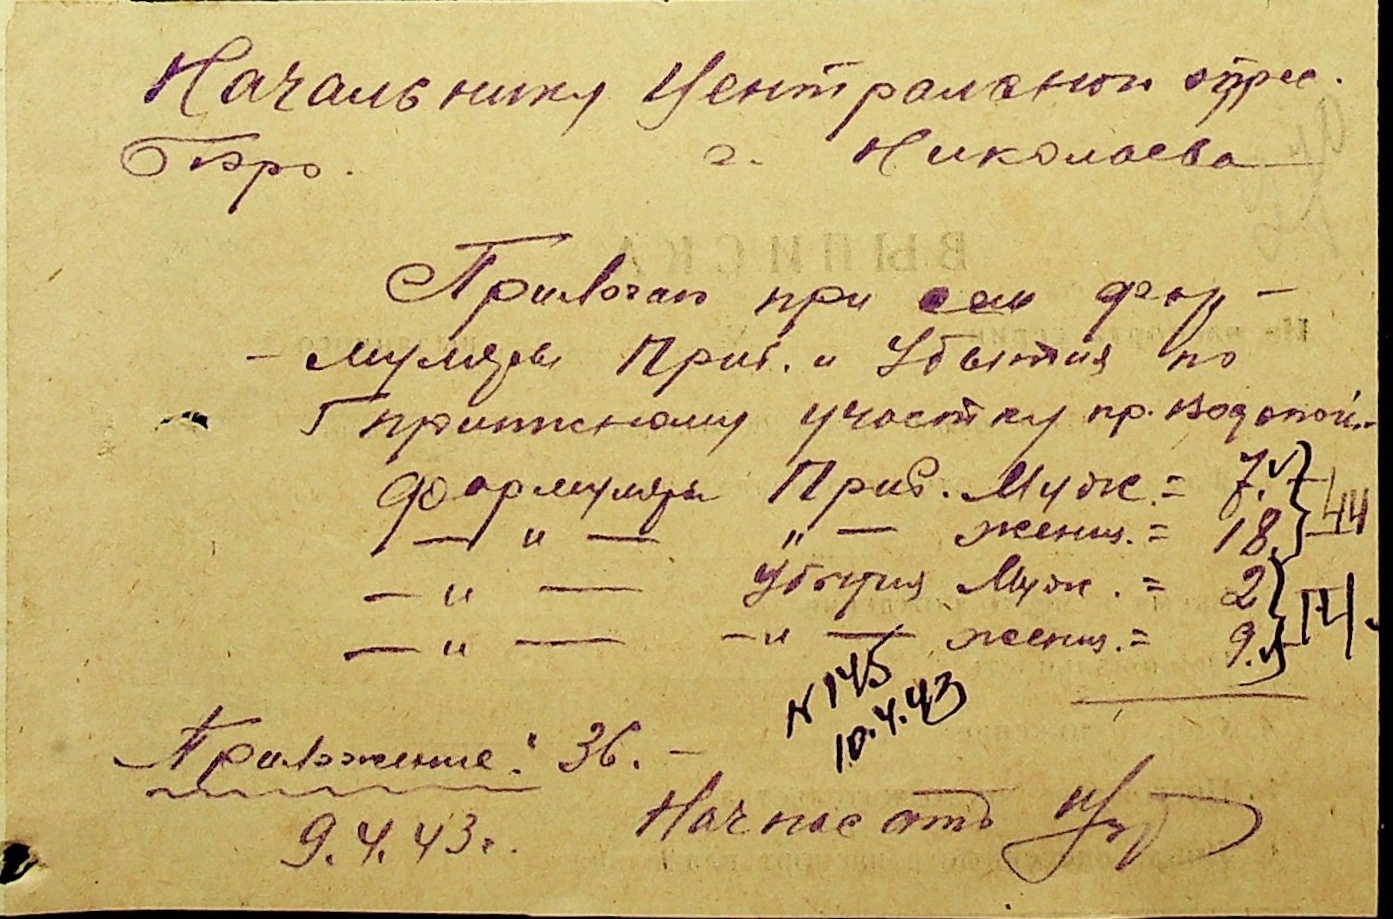 Начальнику Центральной адрес.
Бюро. г. Николаева
Прилогаю при сем фор-
- муляры Приб. и Убытия по
участку пр. Водопой.-
формуляры Приб. Муж. = 7.
— „ — „ — женщ. = 18.
44
— „ — Убытия Муж. = 2
— „ — — „ — женщ. = 9.
N 145
10.4.43
Приложение: 36. —
9.4.43г.
Нач пас отд
ВЫПИСКА